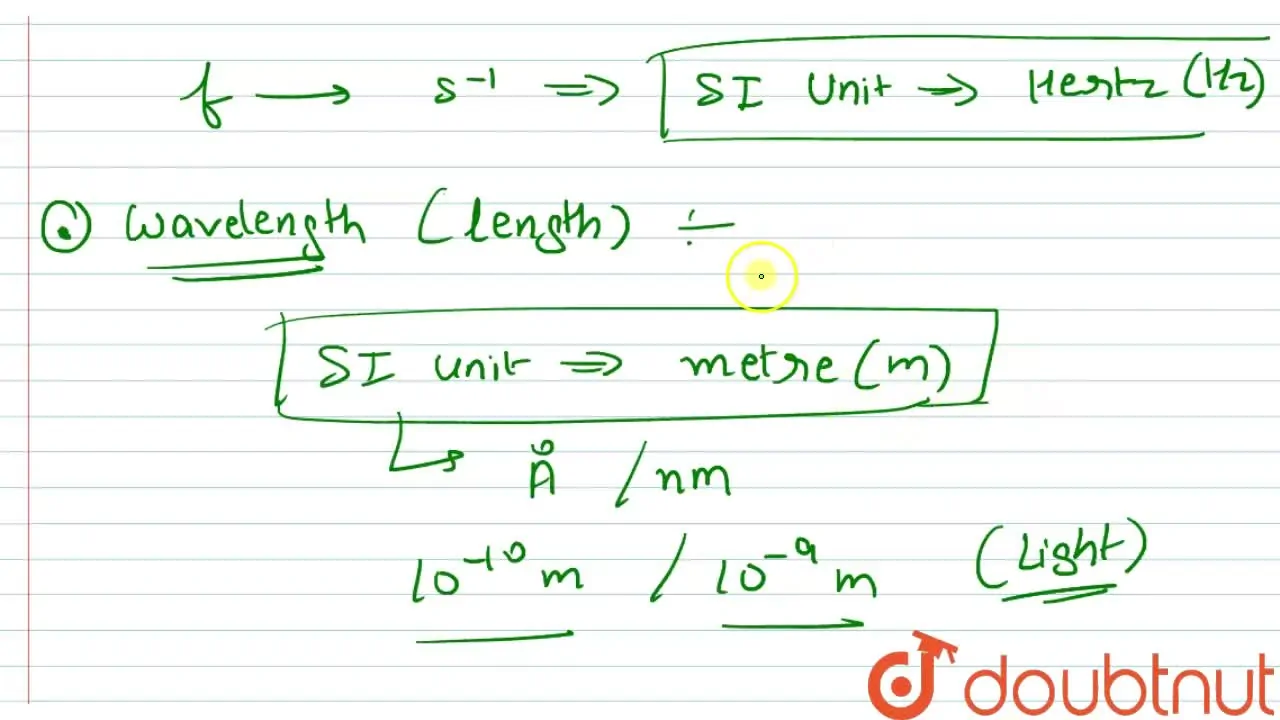 f → s⁻¹ ⇒ SI Unit → Hertz (Hz)
⊙ Wavelength (length) ÷
SI unit ⇒ metre (m)
↳ Å / nm
10⁻¹⁰ m / 10⁻⁹ m (Light)
doubtnut